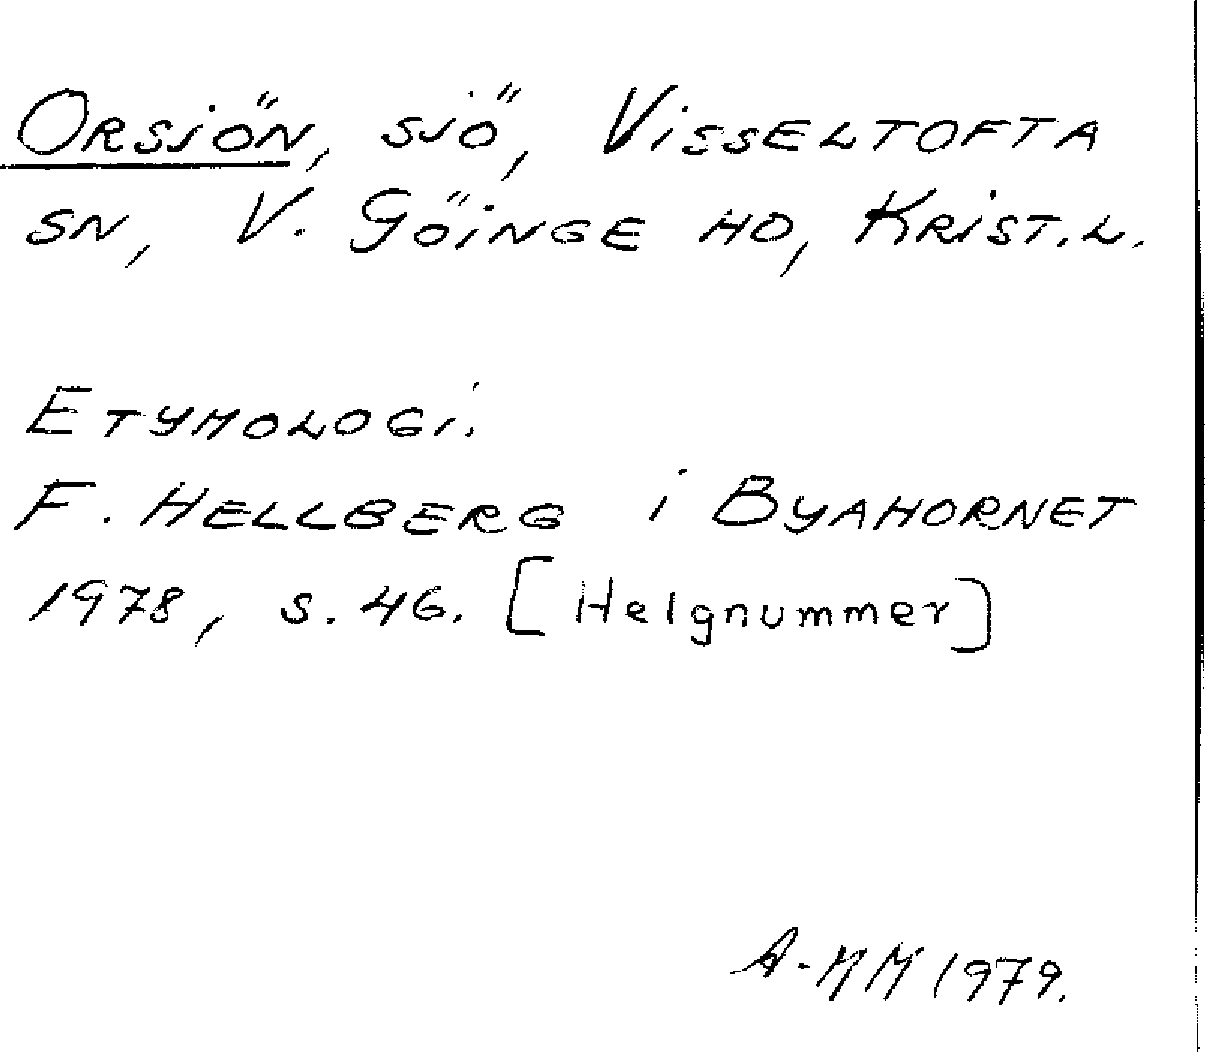 Orsjön, sjö, Visseltofta
sn, V. Göinge hd, Krist.l.
Etymologi.
F. Hellberg i Byahornet
1978, s. 46. [Helgnummer]
A-NM 1979.